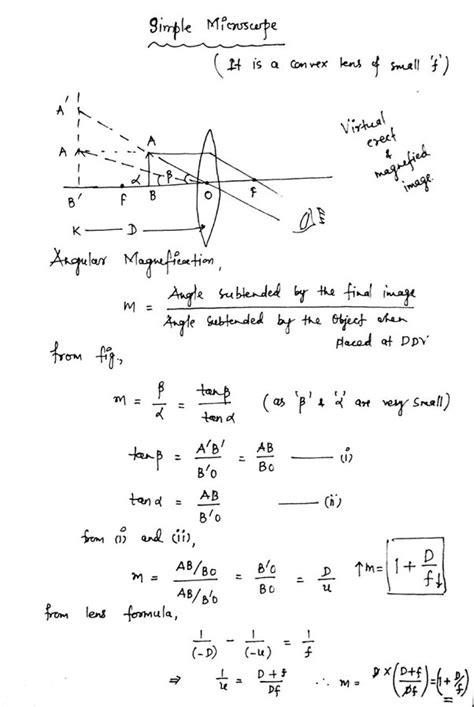 Simple Microscope
(It is a convex lens of small 'f')
A'
A A
α β
B' F B O F
K — D
Virtual
erect
&
magnified
image.
Angular Magnification,
m = Angle subtended by the final image
Angle subtended by the Object when
placed at DDV
from fig.,
m = β/α = tanβ/tanα (as 'β' & 'α' are very small)
tanβ = A'B'/B'O = AB/BO —— (i)
tanα = AB/B'O —— (ii)
from (i) and (ii),
m = AB/BO / AB/B'O = B'O/BO = D/u ↑m = 1 + D/f↓
from lens formula,
1/(-D) - 1/(-u) = 1/f
⇒ 1/u = D+f/Df ∴ m = D × (D+f/Df) = (1+D/f)